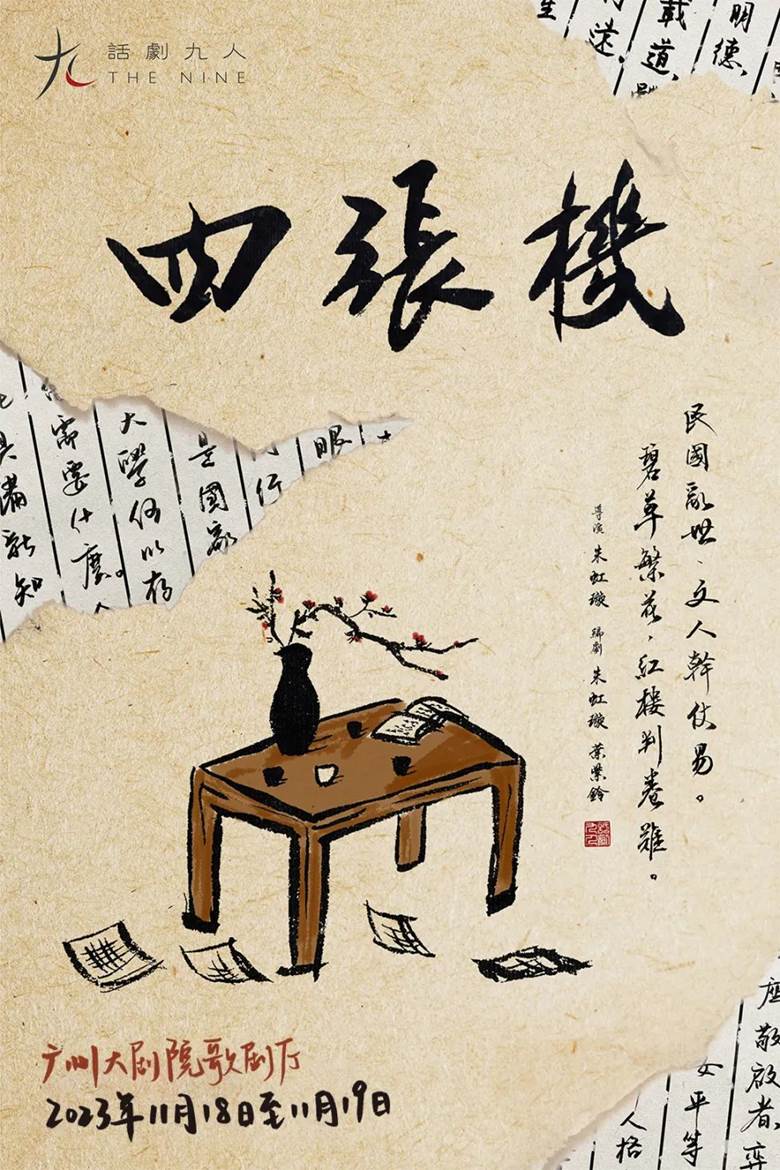 話劇九人
THE NINE
明德
載道
四張機
民國亂世、文人幹仗易。
碧草繁花，紅樓判卷難。
導演 朱虹璇 編劇 朱虹璇 葉紫鈴
眼
是國家
大學何以存
需要什麼。
具備新知
广州大剧院歌剧厅
2023年11月18日至11月19日
座敬啟者
女平等
人格